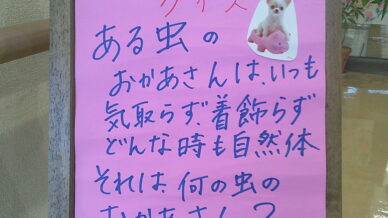 クイズ
ある虫の
おかあさんは、いつも
気取らず、着飾らず
どんな時も自然体
それは、何の虫の
おかあさん?